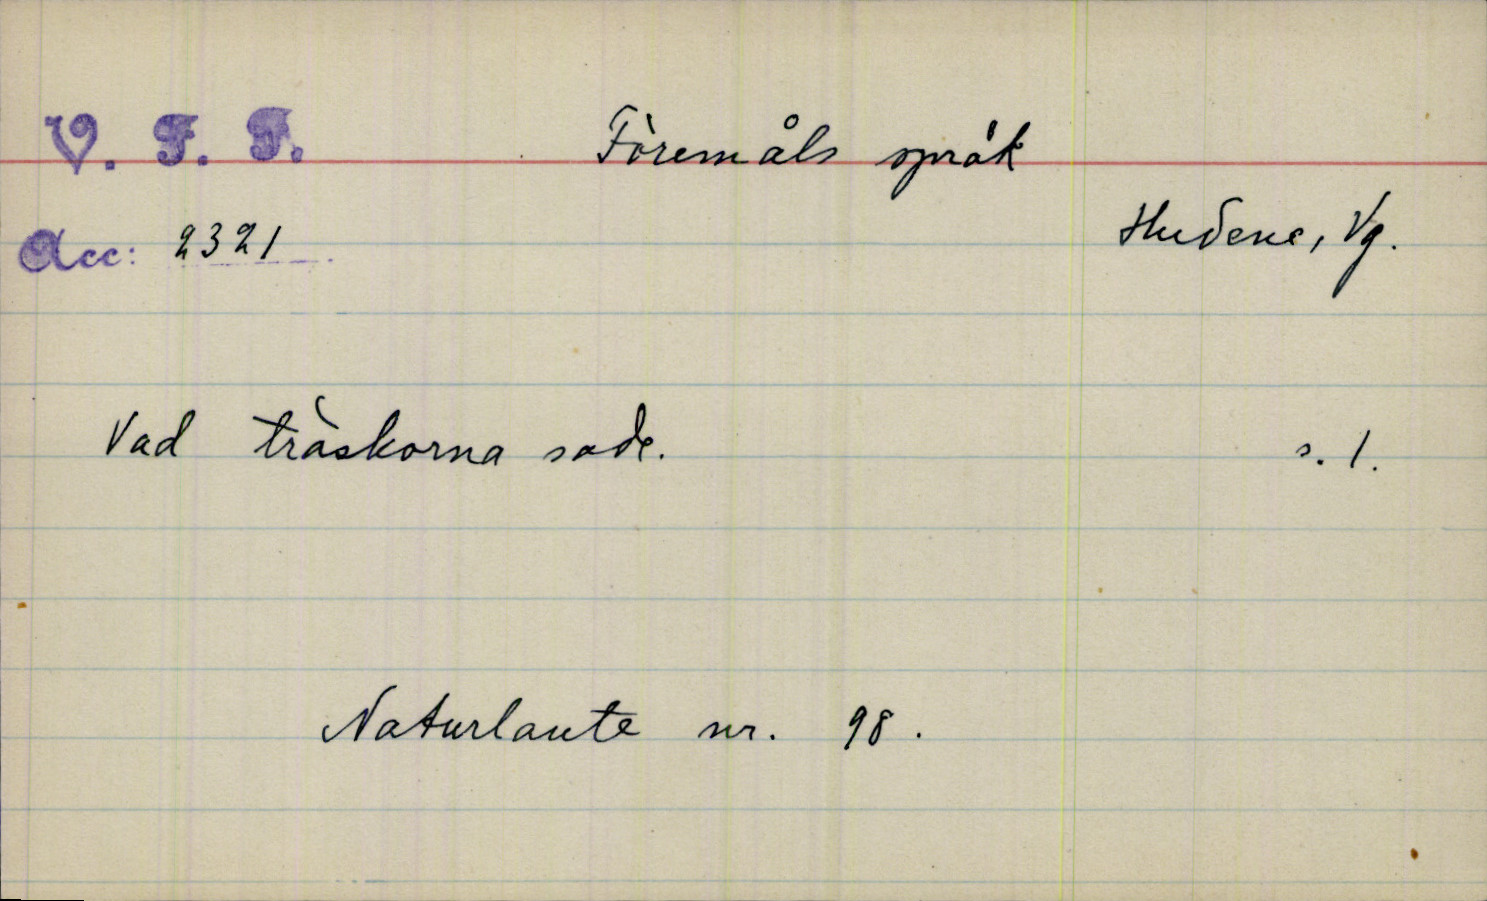 V. F. F. Föremåls språk
Acc: 2321 Hudene, Vg.
Vad träskorna sade. s. 1.
Naturlaute nr. 98.